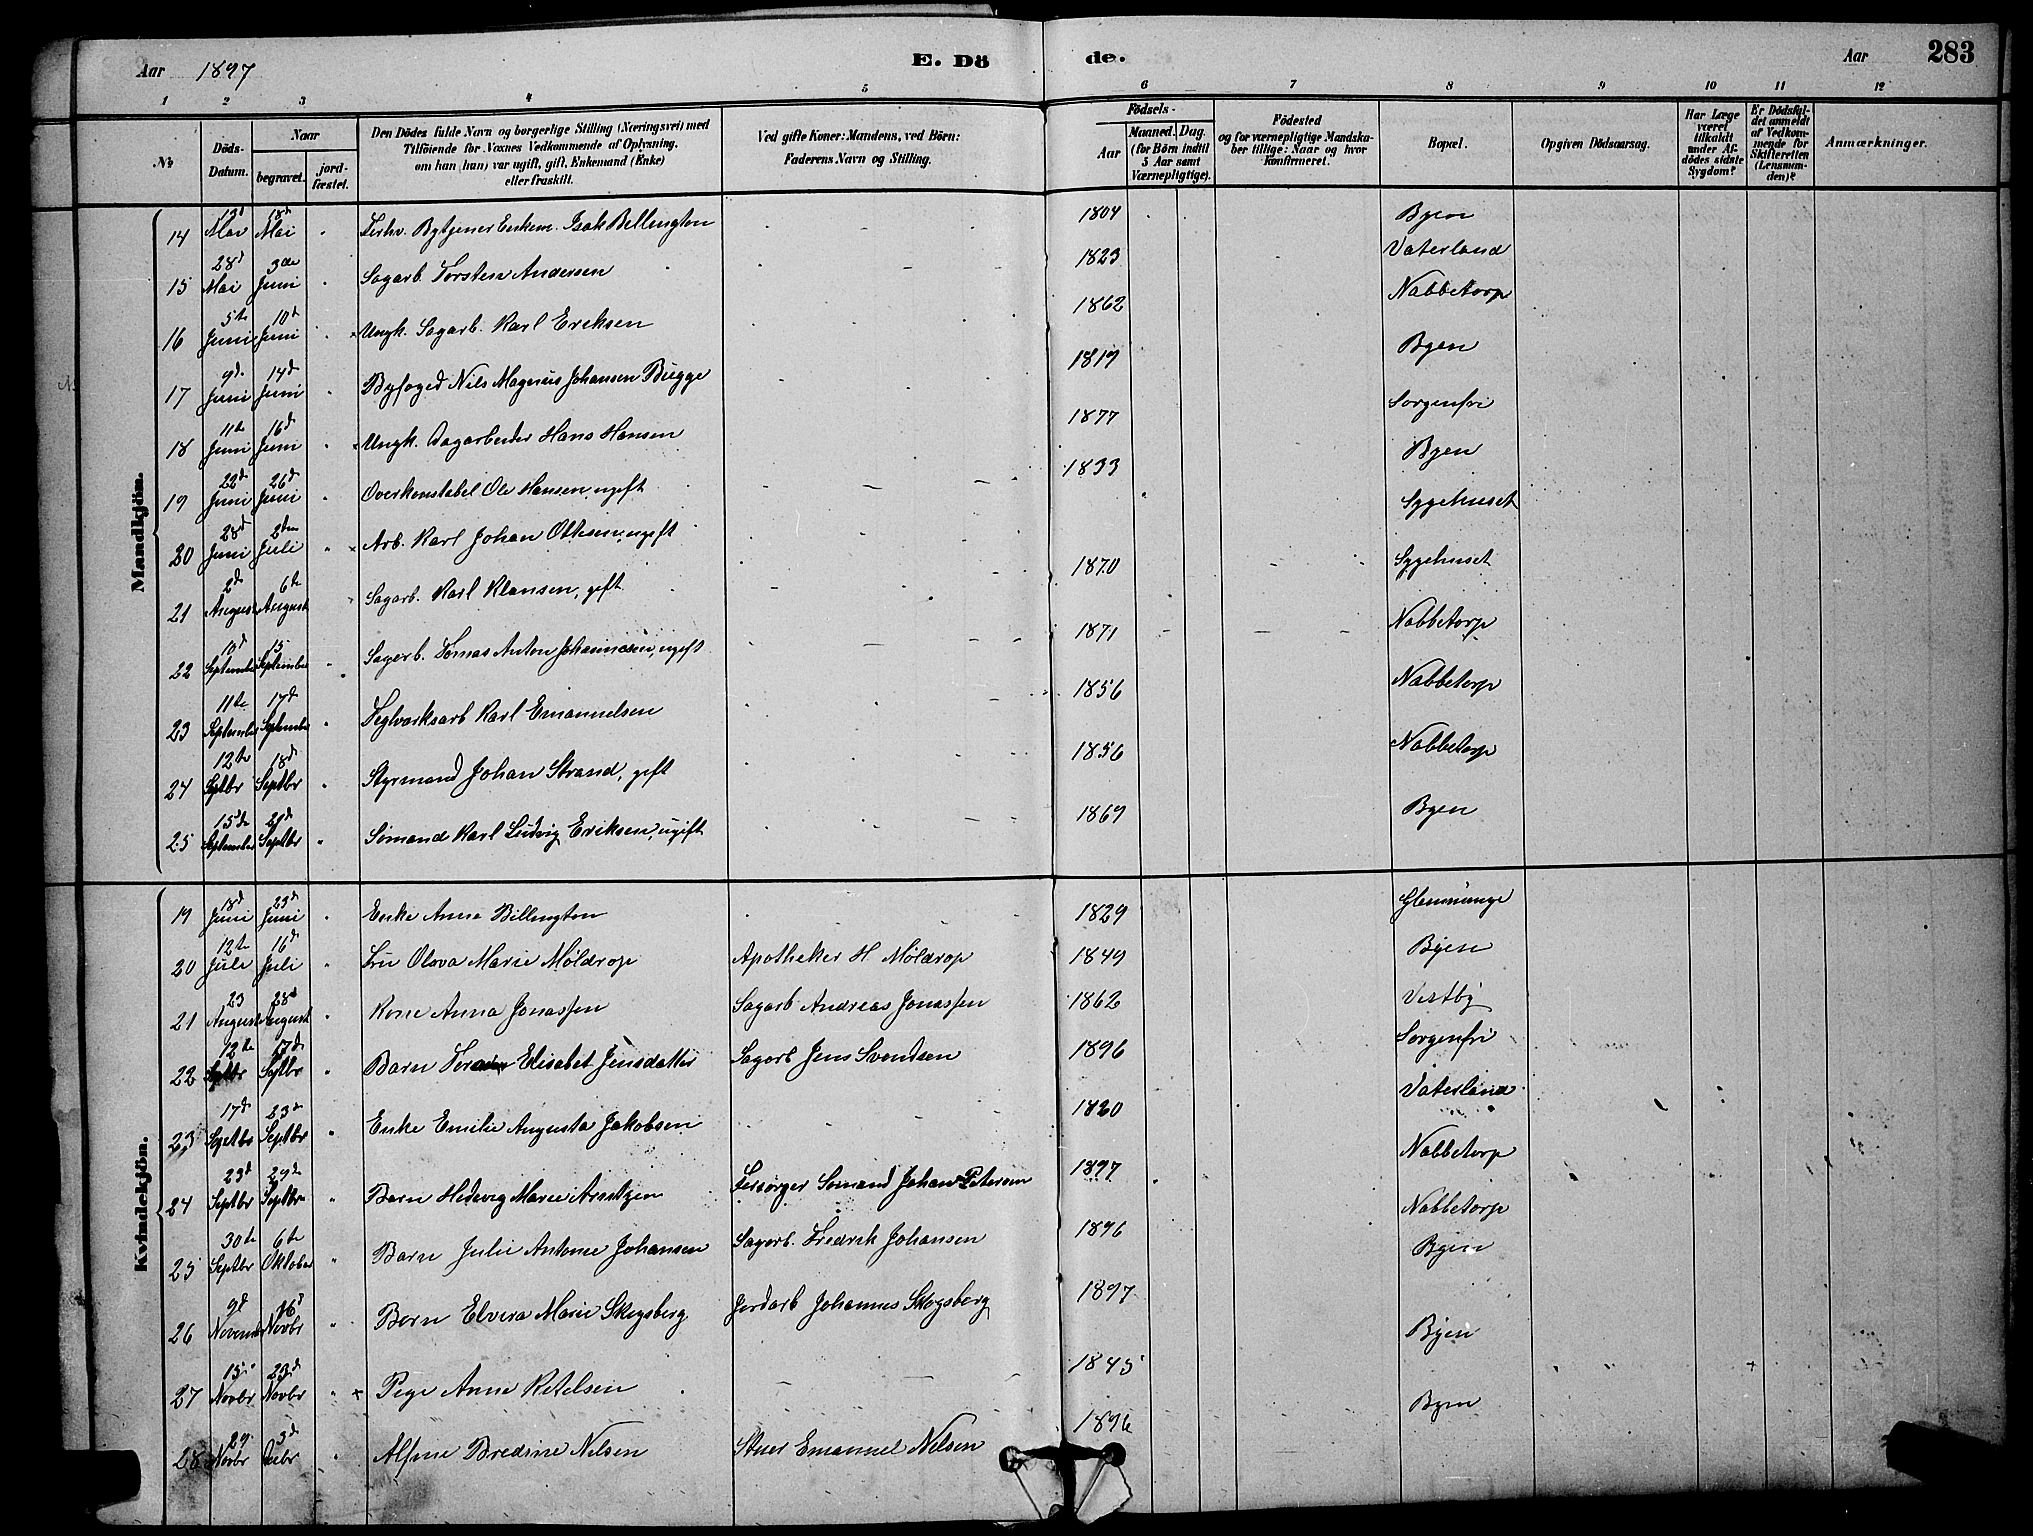 Aar 1897 E. Dö de. Aar 283
1 2 3 4 5 6 7 8 9 10 11 12
No
Döds-Datum.
Naar
begravet.
jordfæstet.
Den Dödes fulde Navn og borgerlige Stilling (Næringsvei) med
Tilföiende for Voxnes Vedkommende af Oplysning,
om han (hun) var ugift, gift, Enkemand (Enke)
eller fraskilt.
Ved gifte Koner: Mandens, ved Börn:
Faderens Navn og Stilling.
Födsels-
Aar
Maaned. Dag.
(for Börn indtil
5 Aar samt
Værnepligtige).
Födested
og for værnepligtige Mandskaber tillige: Naar og hvor
Konfirmeret.
Bopæl.
Opgiven Dödsaarsag.
Har Læge
været
tilkaldt
under Afdödes sidste
Sygdom?
Er Dödsfaldet anmeldt
af Vedkommende for
Skifteretten
(Lensmanden)?
Anmærkninger.
Mandkjön.
14 13d Mai 18d Mai " Forhv. Bytjener Enkem. Isak Bellington 1804 Byen
15 28d Mai 3de Juni " Sagarb. Torsten Andersen 1823 Vaterland
16 5te Juni 10d Juni " Ungk. Sagarb. Karl Eriksen 1862 Nabbetorp
17 9d. Juni 14d Juni " Byfoged Nils Magnus Johansen Bugge 1819 Byen
18 11te Juni 16d Juni " Ungk. Dagarbeider Hans Hansen 1877 Sorgenfri
19 22d Juni 26d Juni " Overkonstabel Ole Hansen, ugift 1833 Byen
20 28d Juni 2den Juli " Arb. Karl Johan Ottesen, ugift Sygehuset
21 2d August 6te August " Sagarb. Karl Klausen, gift 1870 Sygehuset
22 10d September 15 September " Sagarb. Tomas Anton Johannesen, ugift 1871 Nabbetorp
23 11te September 17d September " Teglverksarb Karl Emanuelsen 1856 Nabbetorp
24 12te Septbr 18d Septbr " Styrmand Johan Strand, gift 1856 Nabbetorp
25 15de September 21d Septbr " Sømand Karl Ludvig Eriksen, ugift 1869 Byen
Kvindekjön.
19 18d Juni 23d Juni " Enke Anna Billington 1829 Glemminge
20 12te Juli 16d Juli " Fru Olava Marie Møldrop Apotheker H Møldrop 1849 Byen
21 23 August 28d August " Kone Anna Jonassen Sagarb Andreas Jonassen 1862 Vestby
22 12te Septbr 17d Septbr " Barn Elisabet Jensdatter Sagarb Jens Svendsen 1896 Sorgenfri
23 17d Septbr 23d Septbr " Enke Emilie Augusta Jakobsen 1820 Vaterland
24 23d Septbr 29d Septbr " Barn Hedevig Marie Arntzen Forsørger Sømand Johan Petersen 1897 Nabbetorp
25 30te Septbr 6te Oktober " Barn Julie Antonie Johansen Sagarb. Fredrik Johansen 1896 Nabbetorp
26 9d November 16d Novbr " Barn Elvera Marie Skogsberg Jordarb Johannes Skogsberg 1897 Byen
27 15 Novbr 23d Novbr " Pige Anne Ketelsen 1845 Byen
28 29 Novbr 3d Decbr " Alfine Bredine Nilsen Stuer Emanuel Nilsen 1896 Byen